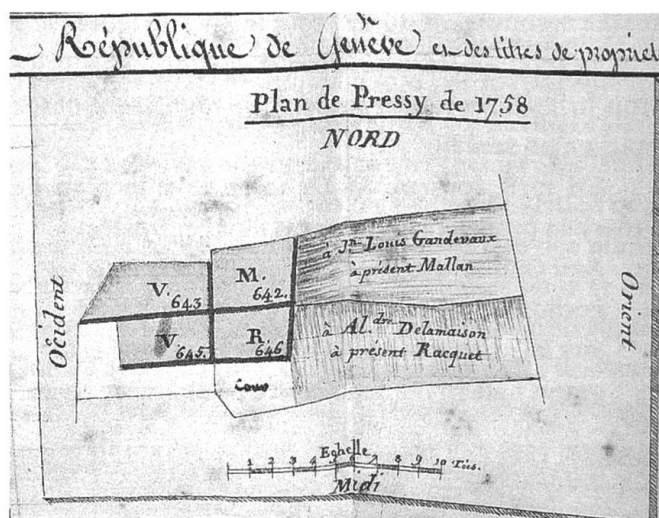 République de Genève et des titres de propriét
Plan de Pressy de 1758
NORD
Occident
Orient
V.
643
M.
642.
à Jn. Louis Gandevaux
à présent Mallan
V.
645.
R.
646
à Al.dre Delamaison
à présent Racquet
Cour
Echelle
1 2 3 4 5 6 7 8 9 10 Tois.
Midi